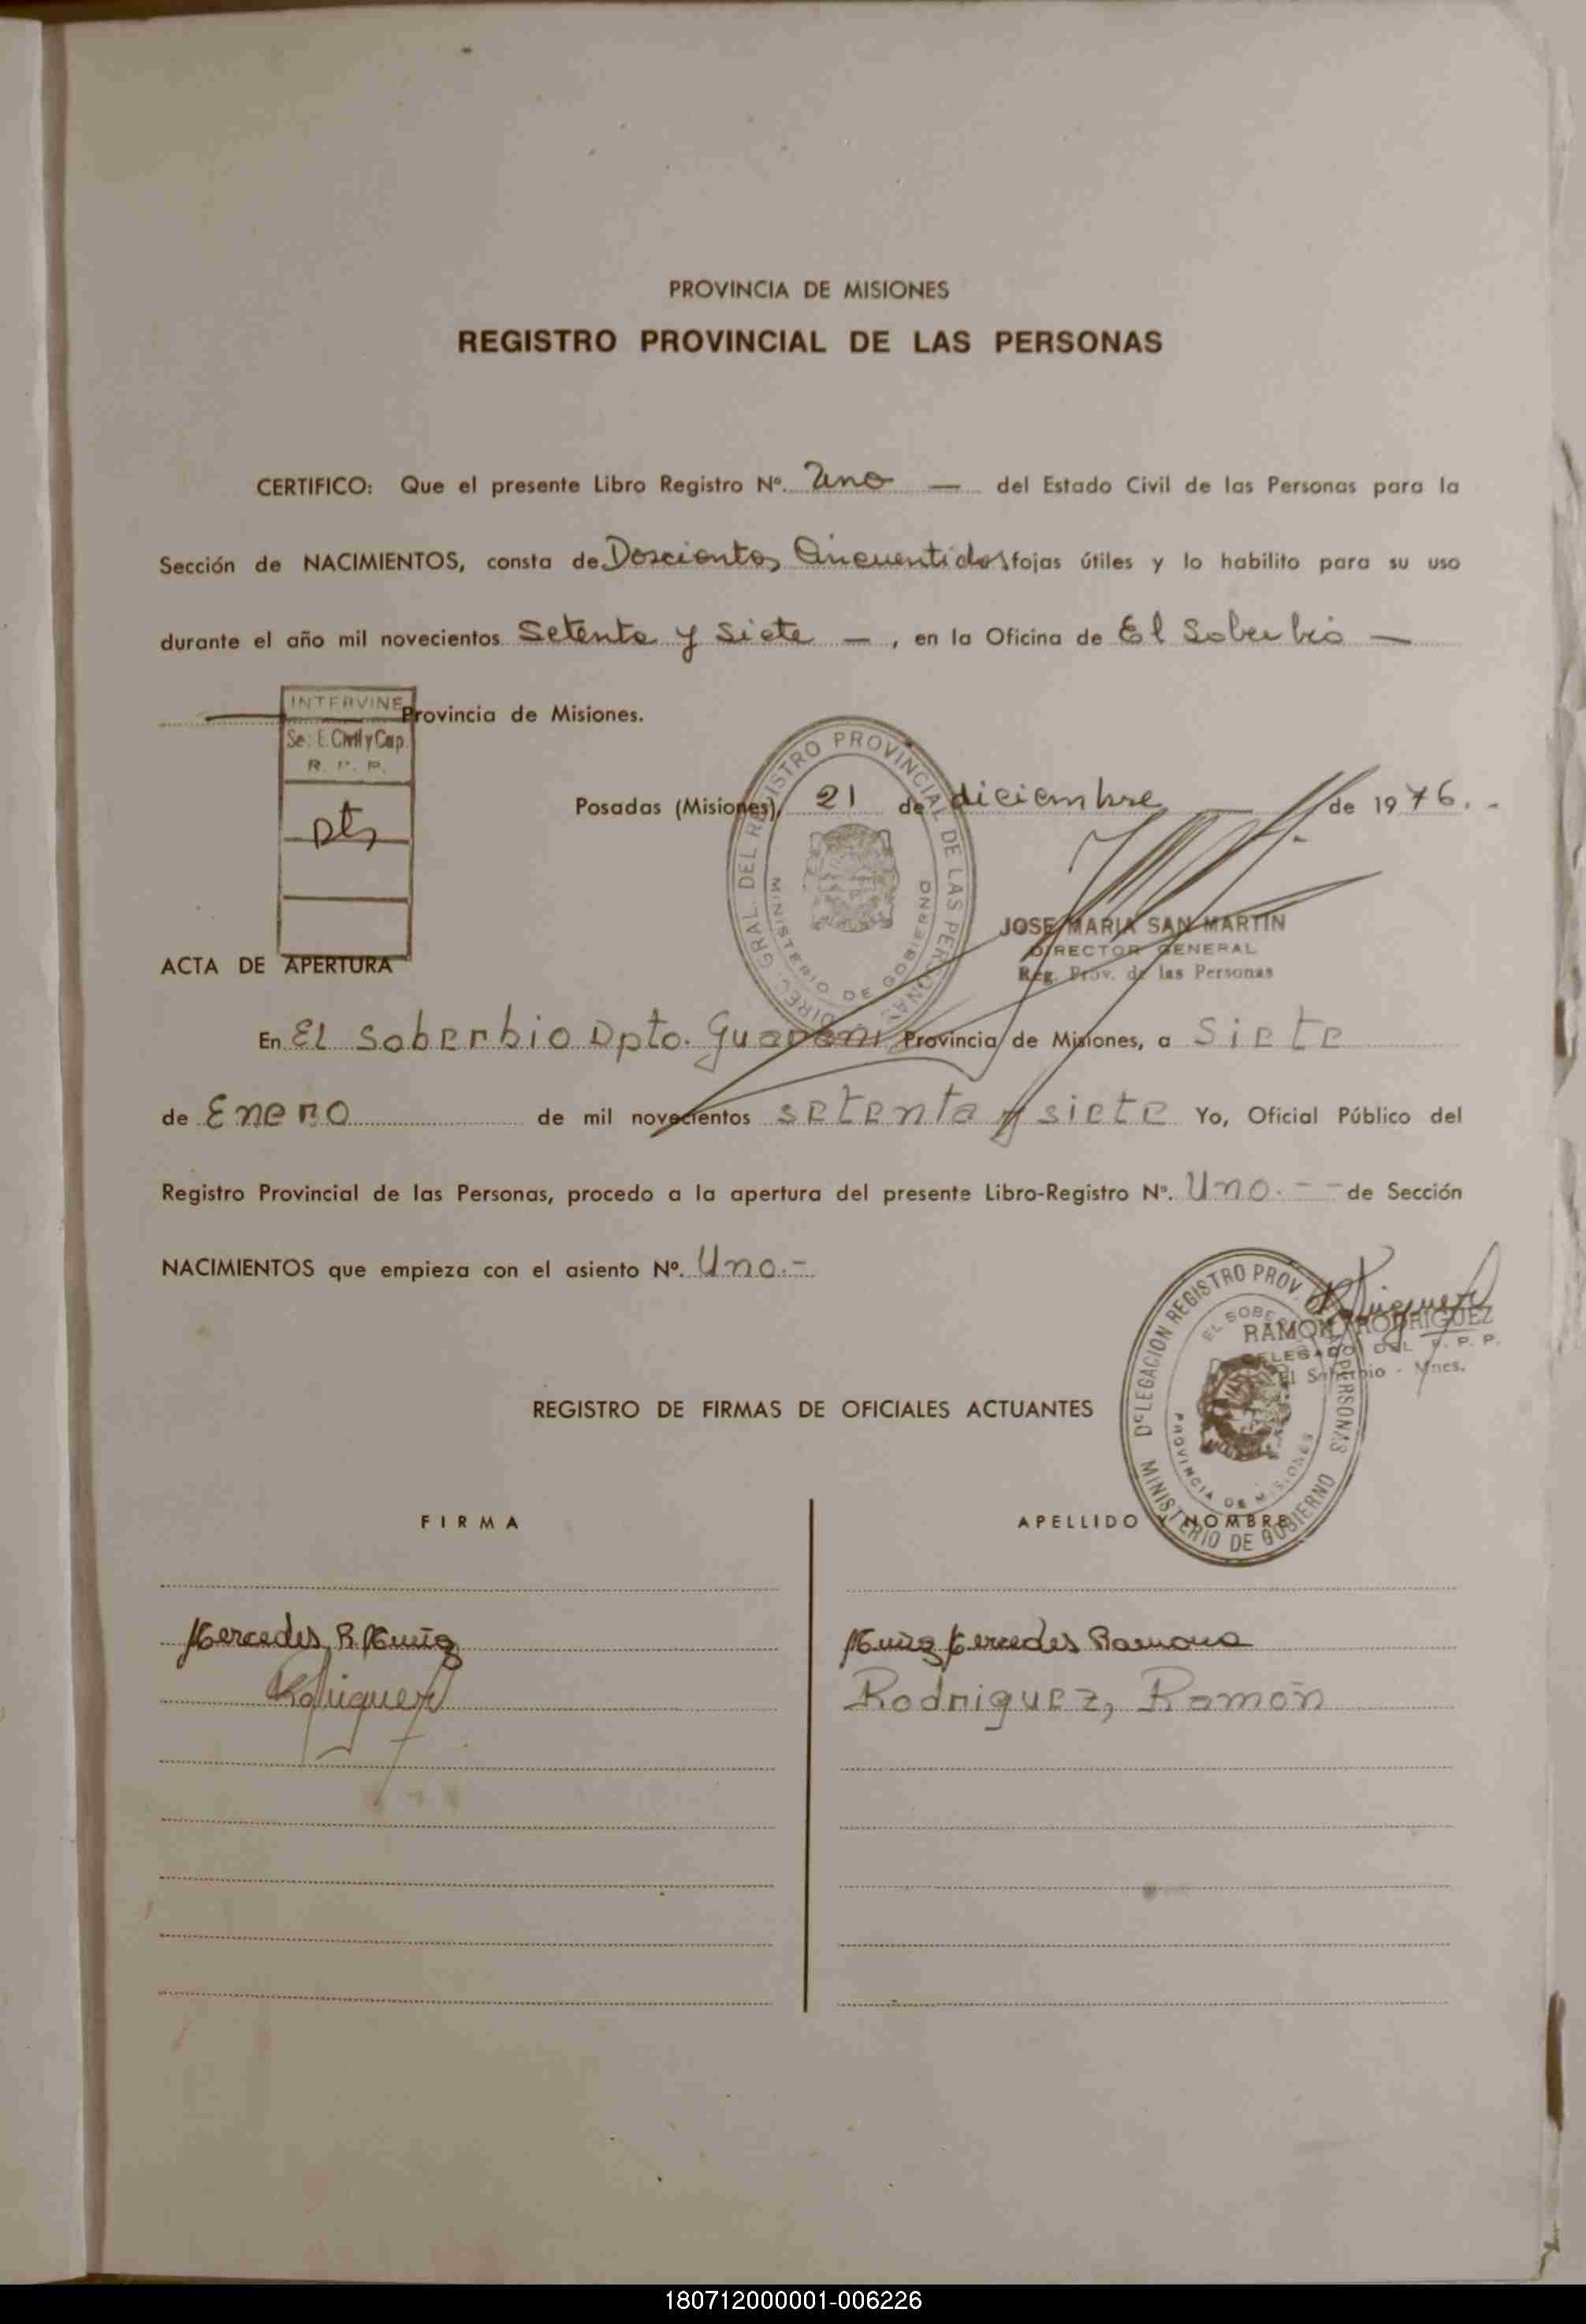 PROVINCIA DE MISIONES
REGISTRO PROVINCIAL DE LAS PERSONAS
CERTIFICO: Que el presente Libro Registro Nº. Uno — del Estado Civil de las Personas para la
Sección de NACIMIENTOS, consta de Doscientos Cincuentidos fojas útiles y lo habilito para su uso
durante el año mil novecientos Setenta y Siete — , en la Oficina de El Soberbio —
— Provincia de Misiones.
INTERVINE
Se: E. Civil y Cap.
R. P. P.
Posadas (Misiones), 21 de diciembre — de 1976.-
DIREC. GRAL. DEL REGISTRO PROVINCIAL DE LAS PERSONAS
MINISTERIO DE GOBIERNO
JOSE MARIA SAN MARTIN
DIRECTOR GENERAL
Reg. Prov. de las Personas
ACTA DE APERTURA
En El Soberbio Dpto. Guarani Provincia de Misiones, a Siete
de Enero de mil novecientos setenta y siete Yo, Oficial Público del
Registro Provincial de las Personas, procedo a la apertura del presente Libro-Registro Nº. Uno.-- de Sección
NACIMIENTOS que empieza con el asiento Nº. Uno.-
RAMON RODRIGUEZ
DELEGADO DEL R. P. P.
El Soberbio - Mnes.
DELEGACION REGISTRO PROV. PERSONAS
EL SOBERBIO
PROVINCIA DE MISIONES
MINISTERIO DE GOBIERNO
REGISTRO DE FIRMAS DE OFICIALES ACTUANTES
FIRMA
APELLIDO Y NOMBRE
Mercedes R. Muñiz
Muñiz Mercedes Ramona
Rodriguez
Rodriguez, Ramón
180712000001-006226